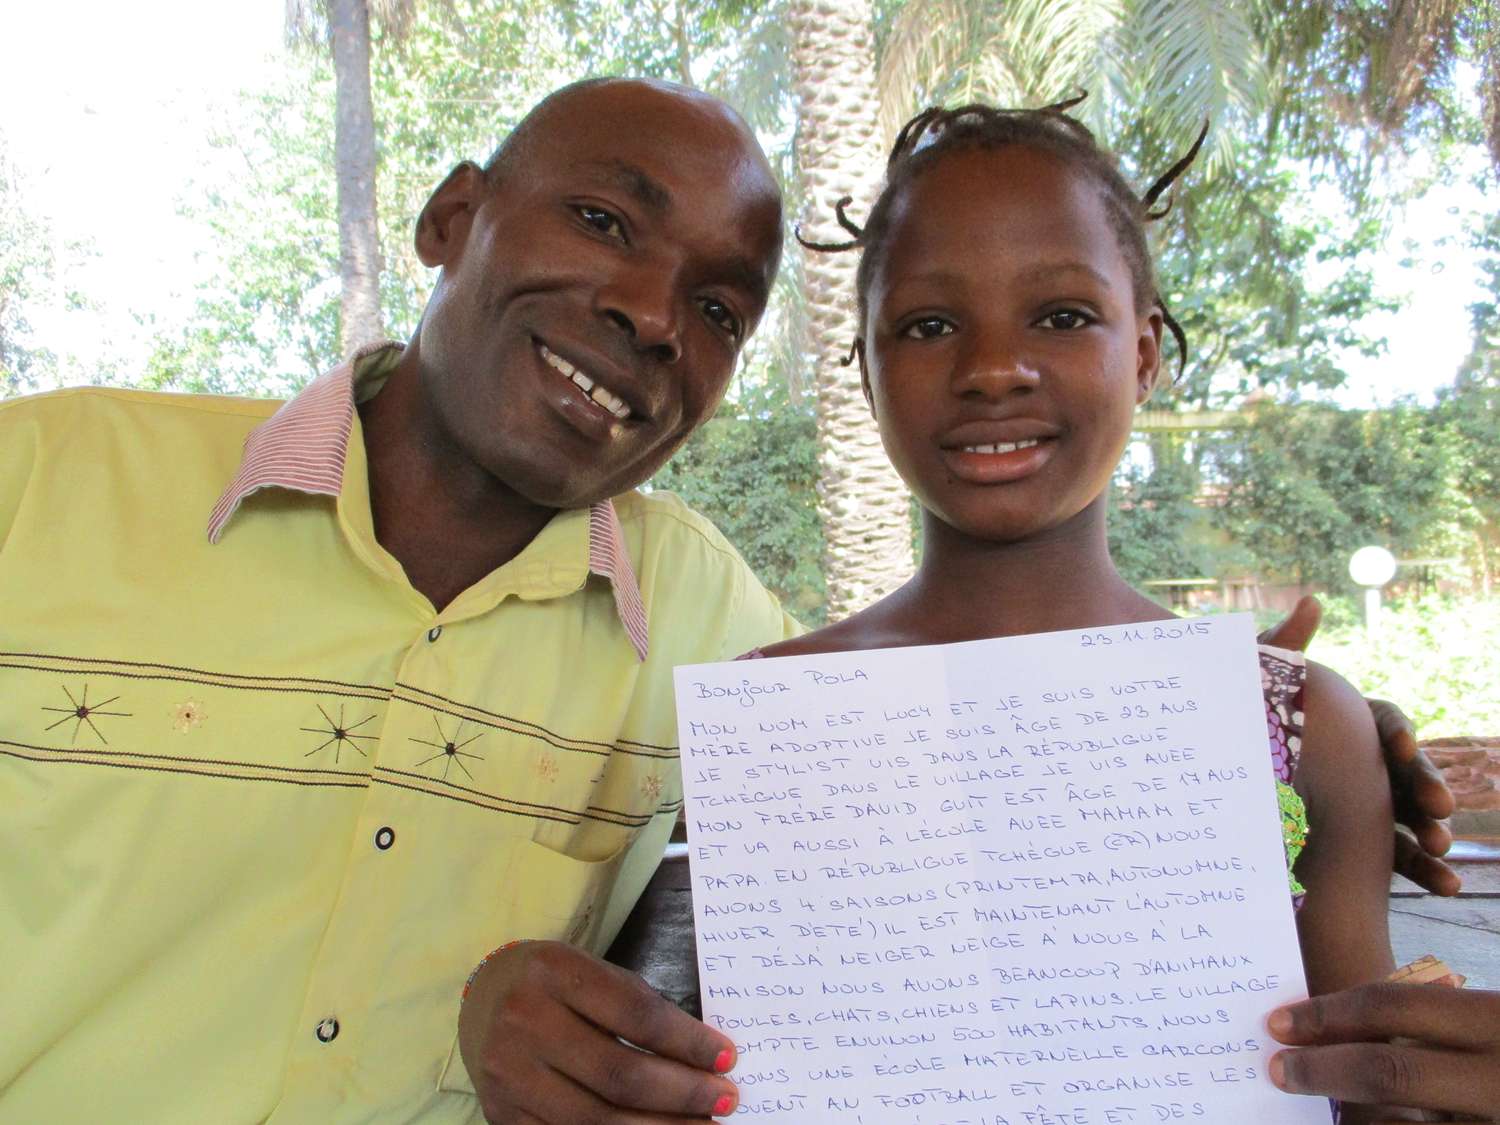 23.11.2015
BONJOUR POLA
MON NOM EST LUCY ET JE SUIS VOTRE
MÈRE ADOPTIVE JE SUIS ÂGE DE 23 AUS
JE STYLIST VIS DAUS LA RÉPUBLIGUE
TCHÉGUE DAUS LE VILLAGE JE VIS AVEE
MON FRÉRE DAVID GUIT EST ÂGE DE 17 AUS
ET VA AUSSI À LÉCOLE AVEE MAMAM ET
PAPA. EN RÉPUBLIGUE TCHÉGUE (ČR) NOUS
AVONS 4 SAISONS (PRINTEMPA, AUTONUMNE,
HIVER D'ETÉ) IL EST MAINTENANT L'AUTOMNE
ET DÉJÁ NEIGER NEIGE Á NOUS Á LA
MAISON NOUS AVONS BEANCOUP D'ANIMANX
POULES, CHATS, CHIENS ET LAPINS. LE VILLAGE
OMPTE ENVINON 500 HABITANTS, NOUS
VONS UNE ÉCOLE MATERNELLE GARCONS
OUENT AN FOOTBALL ET ORGANISE LES
LA FÊTE ET DES